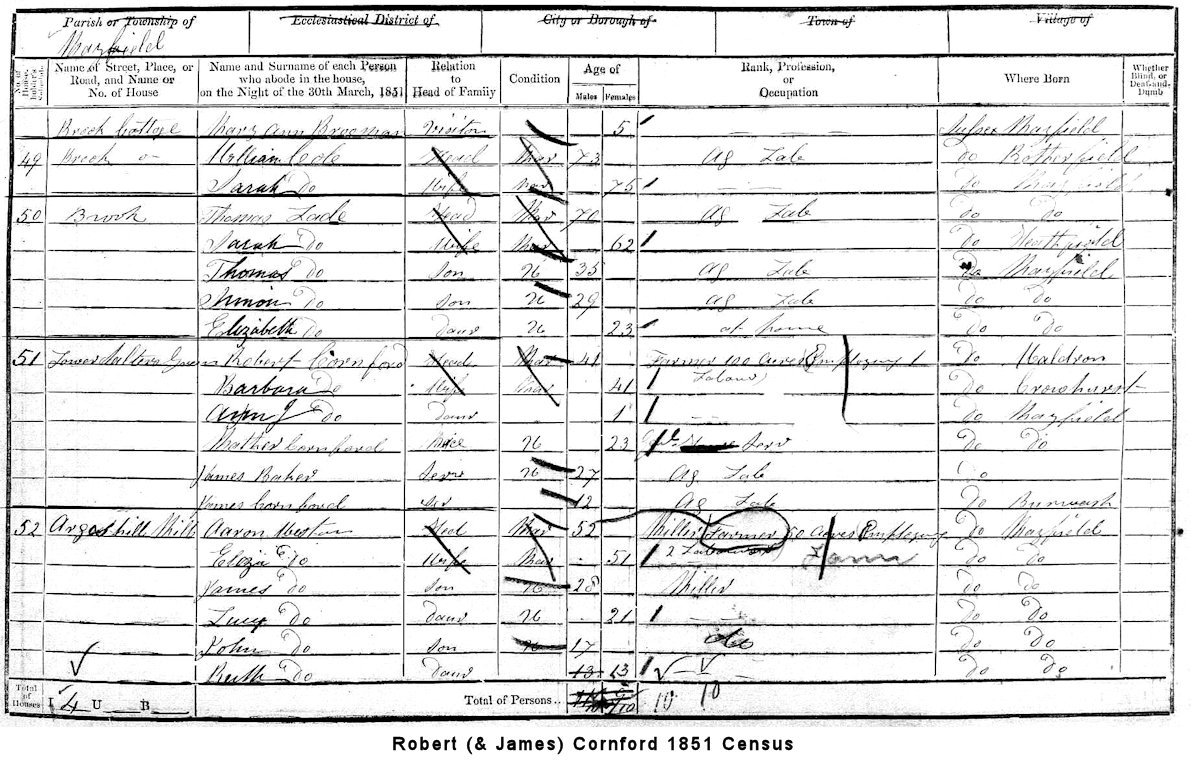 Parish or Township of Ecclesiastical District of City or Borough of Town of Village of
Mayfield
Name of Street, Place, or Road, and Name or No. of House Name and Surname of each Person who abode in the house, on the Night of the 30th March, 1851 Relation to Head of Family Condition Age of Males Females Rank, Profession, or Occupation Where Born Whether Blind, or Deaf-and-Dumb
Brook Cottage Mary Ann Visitor 5 Sussex Mayfield
49 Brook William Cole Head Mar 73 Ag Lab Do Rotherfield
Sarah Do Wife Mar 75 Do Mayfield
50 Brook Thomas Lade Head Mar 70 Ag Lab Do Do
Sarah Do Wife Mar 62 Do Heathfield
Thomas Do Son U 35 Ag Lab Do Mayfield
Simon Do Son U 29 Ag Lab Do Do
Elizabeth Do Daur U 23 at home Do Do
51 Lower Salters Green Robert Cornford Head Mar 41 Farmer 100 Acres Employing 1 Do Waldron
Barbara Do Wife Mar 41 Labour Do Crowhurst
Do Daur 1 Do Mayfield
Cornford Niece U 23 Serv Do Do
James Baker Serv U 27 Ag Lab Do
James Cornford Ser 12 Ag Lab Do Burwash
52 Argos hill Mill Aaron Weston Head Mar 52 Miller Farmer 50 Acres Employing Do Mayfield
Eliza Do Wife Mar 51 2 Labourers Farm Do Do
James Do Son U 28 Miller Do Do
Lucy Do Daur U 21 Do Do
John Do Son U 17 Do Do Do
Ruth Do Daur 13 13 Do Do
Total of Houses I 4 U B Total of Persons 10 10
Robert (& James) Cornford 1851 Census